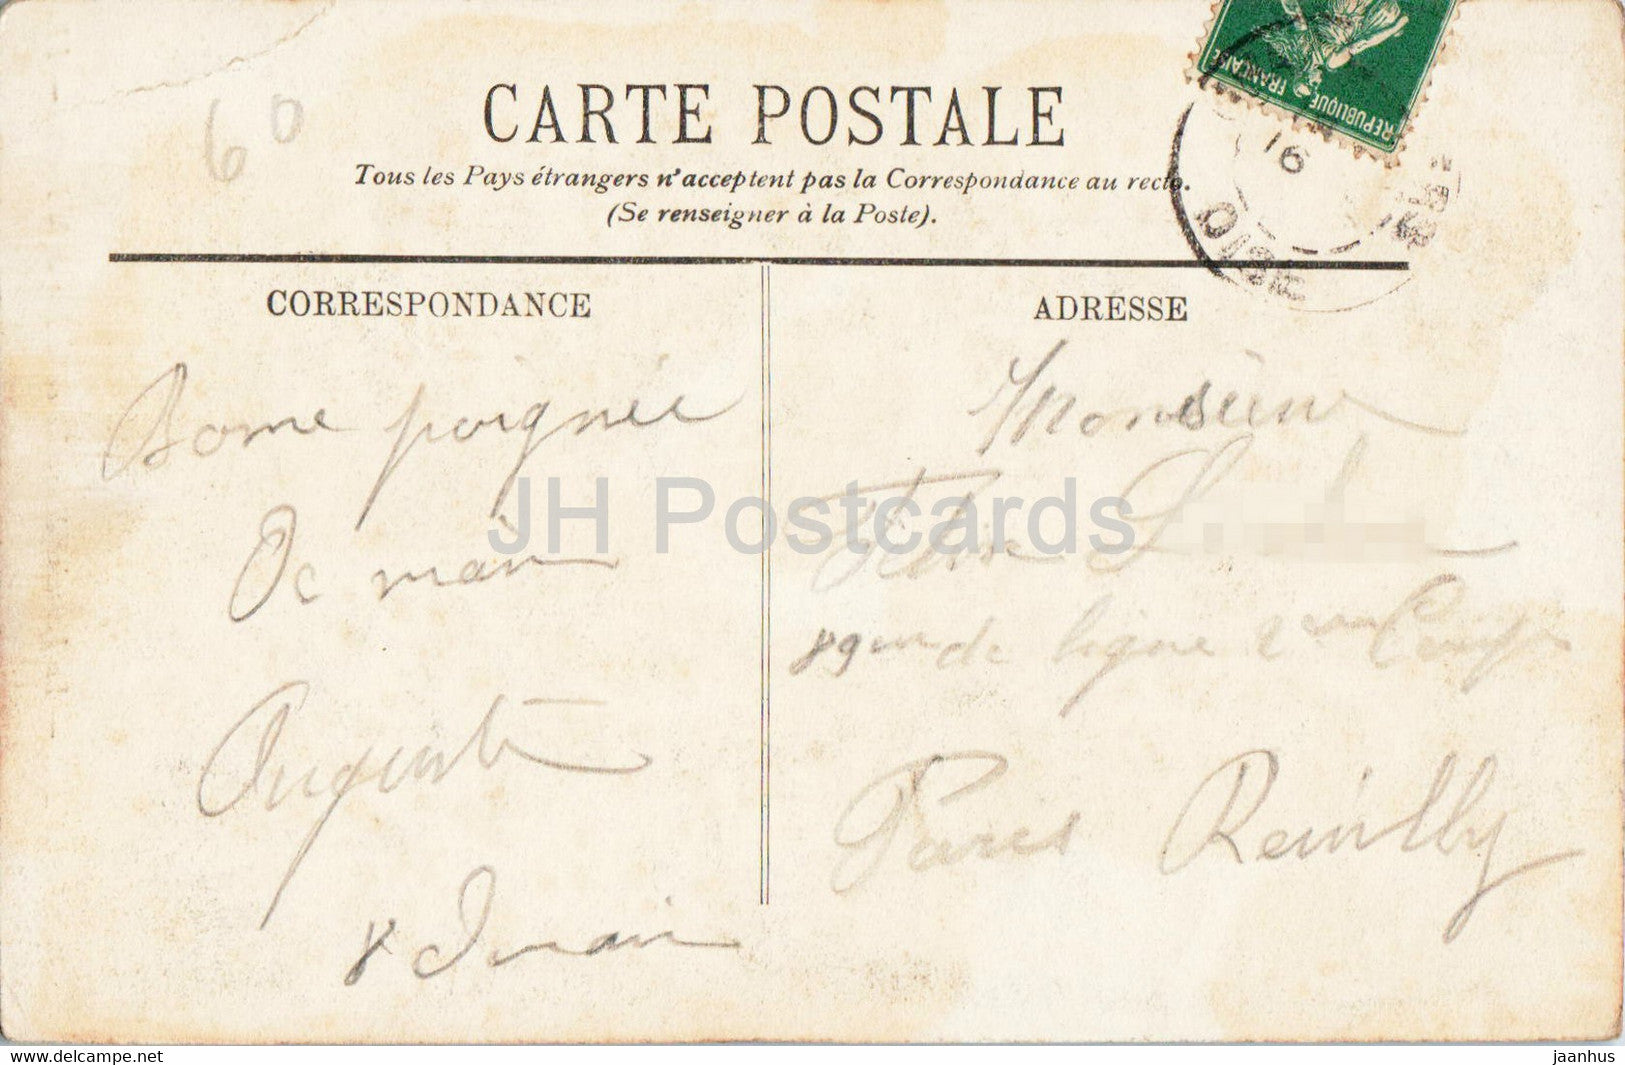 60
CARTE POSTALE
Tous les Pays étrangers n'acceptent pas la Correspondance au recto.
(Se renseigner à la Poste).
REPUBLIQUE FRANÇAISE
16
OISE
CORRESPONDANCE
Bonne poignée
De main
Auguste
ADRESSE
Monsieur
Felix
de ligne 2eme Comp
Paris Reuilly
JH Postcards
www.delcampe.net
jaanhus